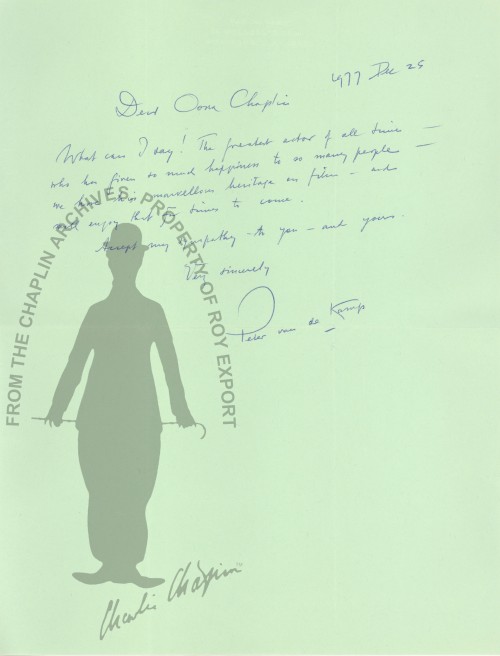 1977 Dec 25
Dear Oona Chaplin
What can I say! The greatest actor of all time —
who has given so much happiness to so many people —
we have his marvellous heritage on film — and
will enjoy that for times to come.
Accept my sympathy — to you — and yours.
Very sincerely
Peter van de Kamp
FROM THE CHAPLIN ARCHIVES. PROPERTY OF ROY EXPORT
Charlie Chaplin